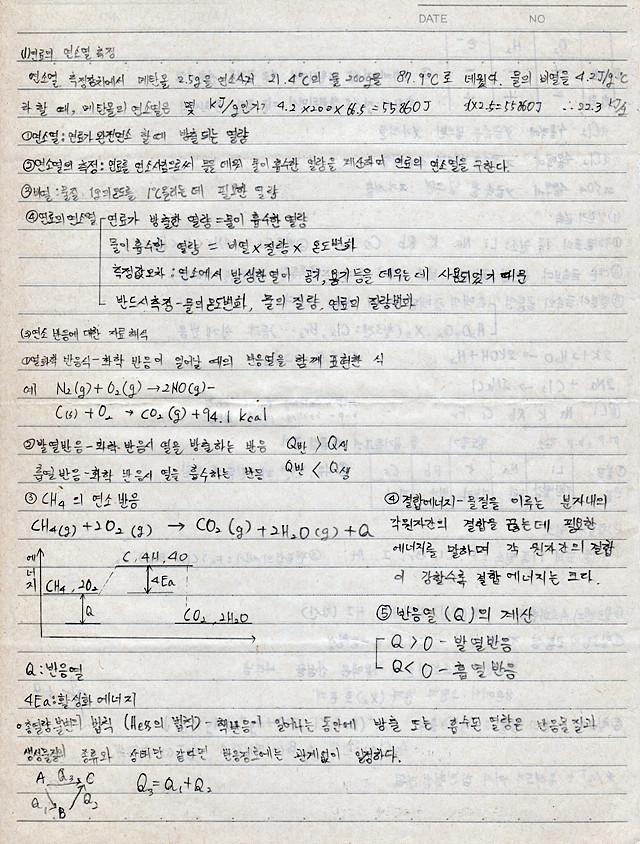 DATE NO
(1)연료의 연소열 측정
연소열 측정장치에서 메탄올 2.5g을 연소시켜 21.4°C의 물 200g을 87.9°C로 데웠다. 물의 비열을 4.2J/g·°C
라 할 때, 메탄올의 연소열은 몇 kJ/g인가? 4.2×200×66.5=55860J x×2.5=55860J ∴22.3 kJ/g
①연소열:연료가 완전연소 할 때 방출되는 열량
②연소열의 측정:연료를 연소시킴으로써 물을 데워 물이 흡수한 열량을 계산하여 연료의 연소열을 구한다.
③비열:물질 1g의 온도를 1°C올리는데 필요한 열량
④연료의 연소열 연료가 방출한 열량=물이 흡수한 열량
물이 흡수한 열량 = 비열×질량×온도변화
측정값오차:연소에서 발생한열이 공기,용기등을 데우는데 사용되었기 때문
반드시측정-물의온도변화, 물의 질량, 연료의 질량변화
(2)연소 반응에 대한 자료해석
①열화학 반응식-화학 반응이 일어날 때의 반응열을 함께 표현한 식
예 N₂(g)+O₂(g)→2NO(g)-
C(s)+O₂ → CO₂(g)+94.1 kcal
②발열반응-화학 반응시 열을 방출하는 반응 Q반 > Q생
흡열반응-화학 반응시 열을 흡수하는 반응 Q반 < Q생
③ CH₄의 연소 반응
CH₄(g)+2O₂(g) → CO₂(g)+2H₂O(g)+Q
에너지
C, 4H, 4O
CH₄, 2O₂
4Ea
Q
CO₂, 2H₂O
Q:반응열
4Ea:활성화에너지
④결합에너지-물질을 이루는 분자내의
각원자간의 결합을 끊는데 필요한
에너지를 말하며 각 원자간의 결합
이 강할수록 결합 에너지는 크다.
⑤반응열(Q)의 계산
Q>0-발열반응
Q<0-흡열반응
총열량불변의 법칙(Hess의 법칙)- 화학반응이 일어나는 동안에 방출 또는 흡수된 열량은 반응물질과
생성물질의 종류와 상태만 같다면 반응경로에는 관계없이 일정하다.
A Q₃ C
Q₁ B Q₂
Q₃=Q₁+Q₂